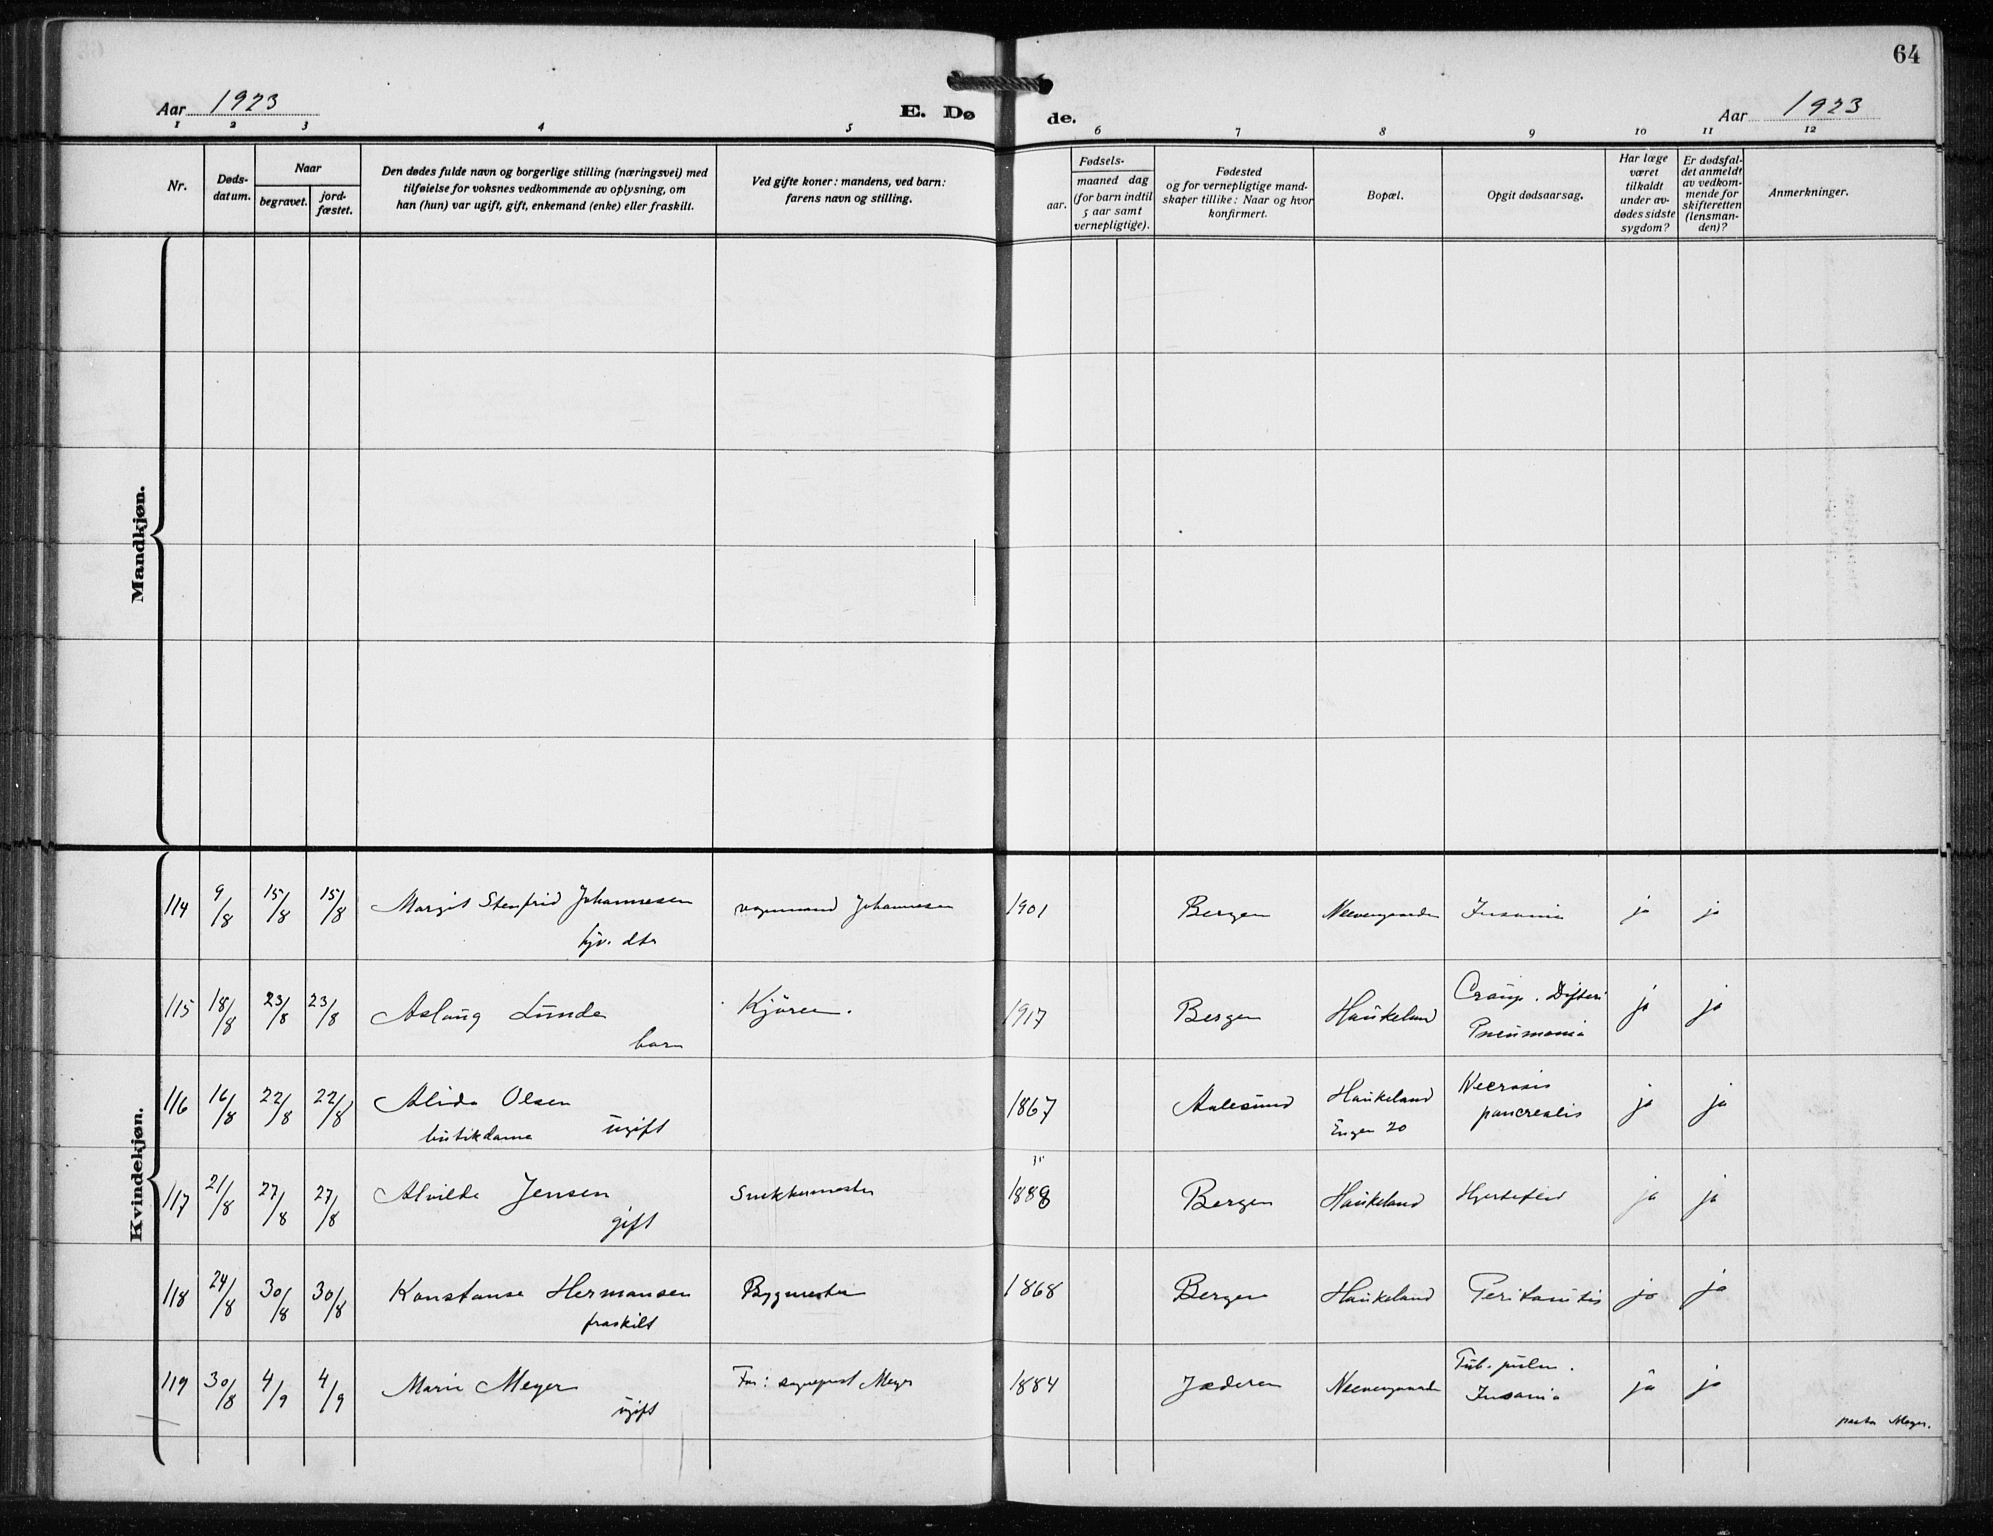 64
Aar 1923
E. Dø de.
Aar 1923
1 2 3 4 5 6 7 8 9 10 11 12
Nr.
Døds-
datum.
Naar
begravet.
jord-
fæstet.
Den dødes fulde navn og borgerlige stilling (næringsvei) med
tilføielse for voksnes vedkommende av oplysning, om
han (hun) var ugift, gift, enkemand (enke) eller fraskilt.
Ved gifte koner: mandens, ved barn:
farens navn og stilling.
aar.
Fødsels-
maaned dag
(for barn indtil
5 aar samt
vernepligtige).
Fødested
og for vernepligtige mand-
skaper tillike: Naar og hvor
konfirmert.
Bopæl.
Opgit dødsaarsag.
Har læge
været
tilkaldt
under av-
dødes sidste
sygdom?
Er dødsfal-
det anmeldt
av vedkom-
mende for
skifteretten
(lensman-
den)?
Anmerkninger.
Mandkjøn.
Kvindekjøn.
114 9/8 15/8 15/8 Margit Stenfrid Johannesen vognmand Johannesen 1901 Bergen Neevengaarden Insania ja ja
hjv. dtr
115 18/8 23/8 23/8 Aslaug Lunde Kjøren. 1917 Bergen Haukeland Croup. Difteri ja ja
barn Pneumonia
116 16/8 22/8 22/8 Alida Olsen 1867 Aalesund Haukeland Necrosis ja ja
butikdame ugift Engen 20 pancreatis
117 21/8 27/8 27/8 Alvilde Jensen Snekkermester 1888 Bergen Haukeland Hjertefeil ja ja
gift
118 24/8 30/8 30/8 Konstanse Hermansen Bygmester 1868 Bergen Haukeland Peritonitis ja ja
fraskilt
119 30/8 4/9 4/9 Marie Meyer Far: sogneprest Meyer 1884 Jæderen Neevengaarden Tub. pulm. ja ja
ugift Insania
pastor Meyer.